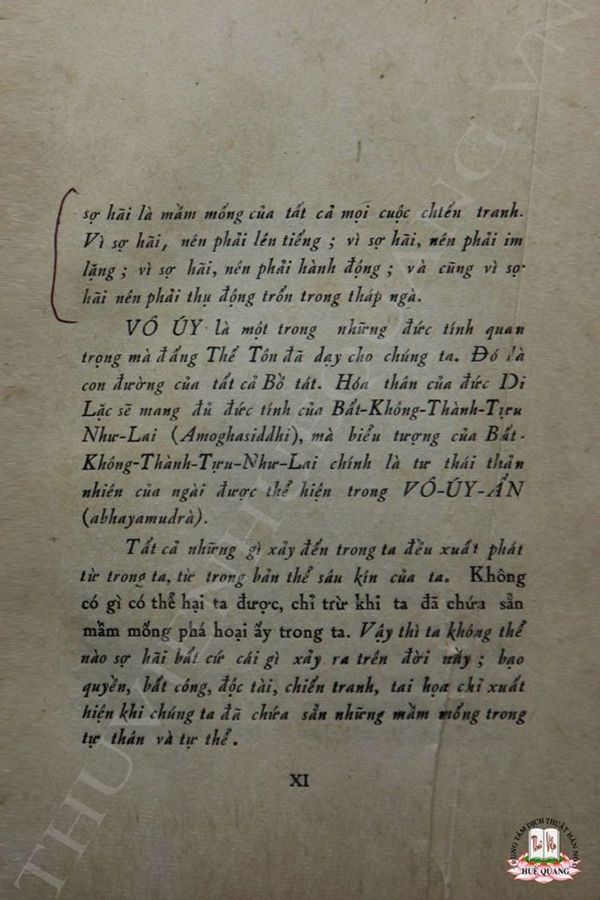 sợ hãi là mầm mống của tất cả mọi cuộc chiến tranh.
Vì sợ hãi, nên phải lên tiếng ; vì sợ hãi, nên phải im
lặng ; vì sợ hãi, nên phải hành động ; và cũng vì sợ
hãi nên phải thụ động trốn trong tháp ngà.
VÔ ÚY là một trong những đức tính quan
trọng mà đấng Thế Tôn đã dạy cho chúng ta. Đó là
con đường của tất cả Bồ tát. Hóa thân của đức Di
Lặc sẽ mang đủ đức tính của Bất-Không-Thành-Tựu
Như-Lai (Amoghasiddhi), mà biểu tượng của Bất-
Không-Thành-Tựu-Như-Lai chính là tư thái thản
nhiên của ngài được thể hiện trong VÔ-ÚY-ẤN
(abhayamudrà).
Tất cả những gì xảy đến trong ta đều xuất phát
từ trong ta, từ trong bản thể sâu kín của ta. Không
có gì có thể hại ta được, chỉ trừ khi ta đã chứa sẵn
mầm mống phá hoại ấy trong ta. Vậy thì ta không thể
nào sợ hãi bất cứ cái gì xảy ra trên đời nầy ; bạo
quyền, bất công, độc tài, chiến tranh, tai họa chỉ xuất
hiện khi chúng ta đã chứa sẵn những mầm mống trong
tự thân và tự thể.
XI
TRUNG TÂM DỊCH THUẬT HÁN NÔM
HUỆ QUANG